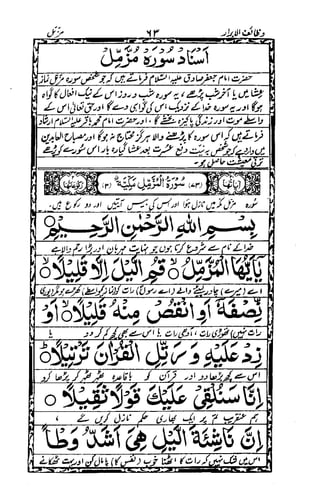 وظائف الابرار ٦٣ مزمل
اسناد سورہ مزمل
حضرت امام جعفر صادق علیہ السلام فرماتے ہیں کہ جو شخص سورہ مزمل نماز
عشا میں یا آخر شب پڑھے، یہ سورہ شب و روز اس کے نیک افعال کا گواہ
ہوگا اور یہ سورہ خدا کے نزدیک اس کی گواہی دے گا اور حق تعالیٰ اس کے
واسطے موت اور زندگی پاکیزہ بخشے گا، اور حضرت امام محمد باقر علیہ السلام ارشاد
فرماتے ہیں کہ اس سورہ کا پڑھنے والا ہرگز محتاج نہ ہوگا اور مصباح العابدین
میں وارد ہے کہ جو بہ نیت دفع عسرت بعد عشا گیارہ بار اس سورے کو پڑھے
ترقی معیشت حاصل ہو۔
(٧٣) سُوْرَةُ الْمُزَّمِّلِ مَكِّيَّةٌ (٣)
سورہ مزمل مکہ میں نازل ہوا اور اس کی بیس آیتیں اور دو رکوع ہیں۔
بِسْمِ اللّٰهِ الرَّحْمٰنِ الرَّحِيْمِ
خدا کے نام سے شروع کرتا ہوں جو نہایت مہربان اور بڑا رحم والا ہے
يٰۤاَيُّهَا الْمُزَّمِّلُ قُمِ الَّيْلَ اِلَّا قَلِيْلًا
اے (میرے) چادر لپیٹنے والے (رسول) رات کو (نماز کے واسطے) کھڑے رہو مگر (پوری
نِّصْفَهٗۤ اَوِ انْقُصْ مِنْهُ قَلِيْلًا اَوْ
رات نہیں) تھوڑی رات، آدھی رات یا اس سے بھی کچھ کم کر دو یا
زِدْ عَلَيْهِ وَ رَتِّلِ الْقُرْاٰنَ تَرْتِيْلًا
اس سے کچھ بڑھا دو اور قرآن کو باقاعدہ ٹھہر ٹھہر کر پڑھا کرو
اِنَّا سَنُلْقِيْ عَلَيْكَ قَوْلًا ثَقِيْلًا
ہم عنقریب تم پر ایک بھاری حکم نازل کریں گے
اِنَّ نَاشِئَةَ الَّيْلِ هِيَ اَشَدُّ وَطْاً
اس میں شک نہیں کہ رات کا اٹھنا خوب (نفس کا) پامال کن اور بہت ٹھکانے